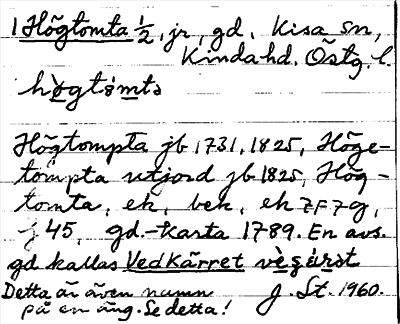 1 Högtomta ½, jr, gd, Kisa sn,
Kinda hd. Östg. l.
hògtòmta
Högtompta jb 1731, 1825, Höge-
tompta utjord jb 1825, Hög-
tomta, ek, bek, ek 7F7g,
j 45, gd.-karta 1789. En avs.
gd kallas Vedkärret
Detta är även namn J. St. 1960.
på en äng. Se detta!